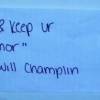 & Keep ur
nor"
Will Champlin